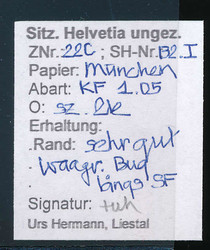 Sitz. Helvetia ungez.
ZNr.: 22C ; SH-Nr. B2.I
Papier: München
Abart: KF 1.05
O: sz.
Erhaltung:
Rand: sehr gut
waagr. Bug
längs SF
Signatur:
Urs Hermann, Liestal